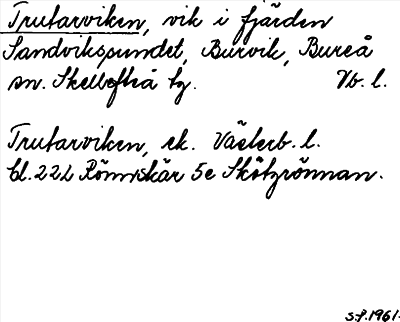 Trutarviken, vik i fjärden
Sandviksfundet, Burvik, Bureå
sn. Skellefteå tg. Vb. l.
Trutarviken, ek. Västerb. l.
bl. 22L Rönnskär 5e Skötgrönnan.
s.f. 1961.